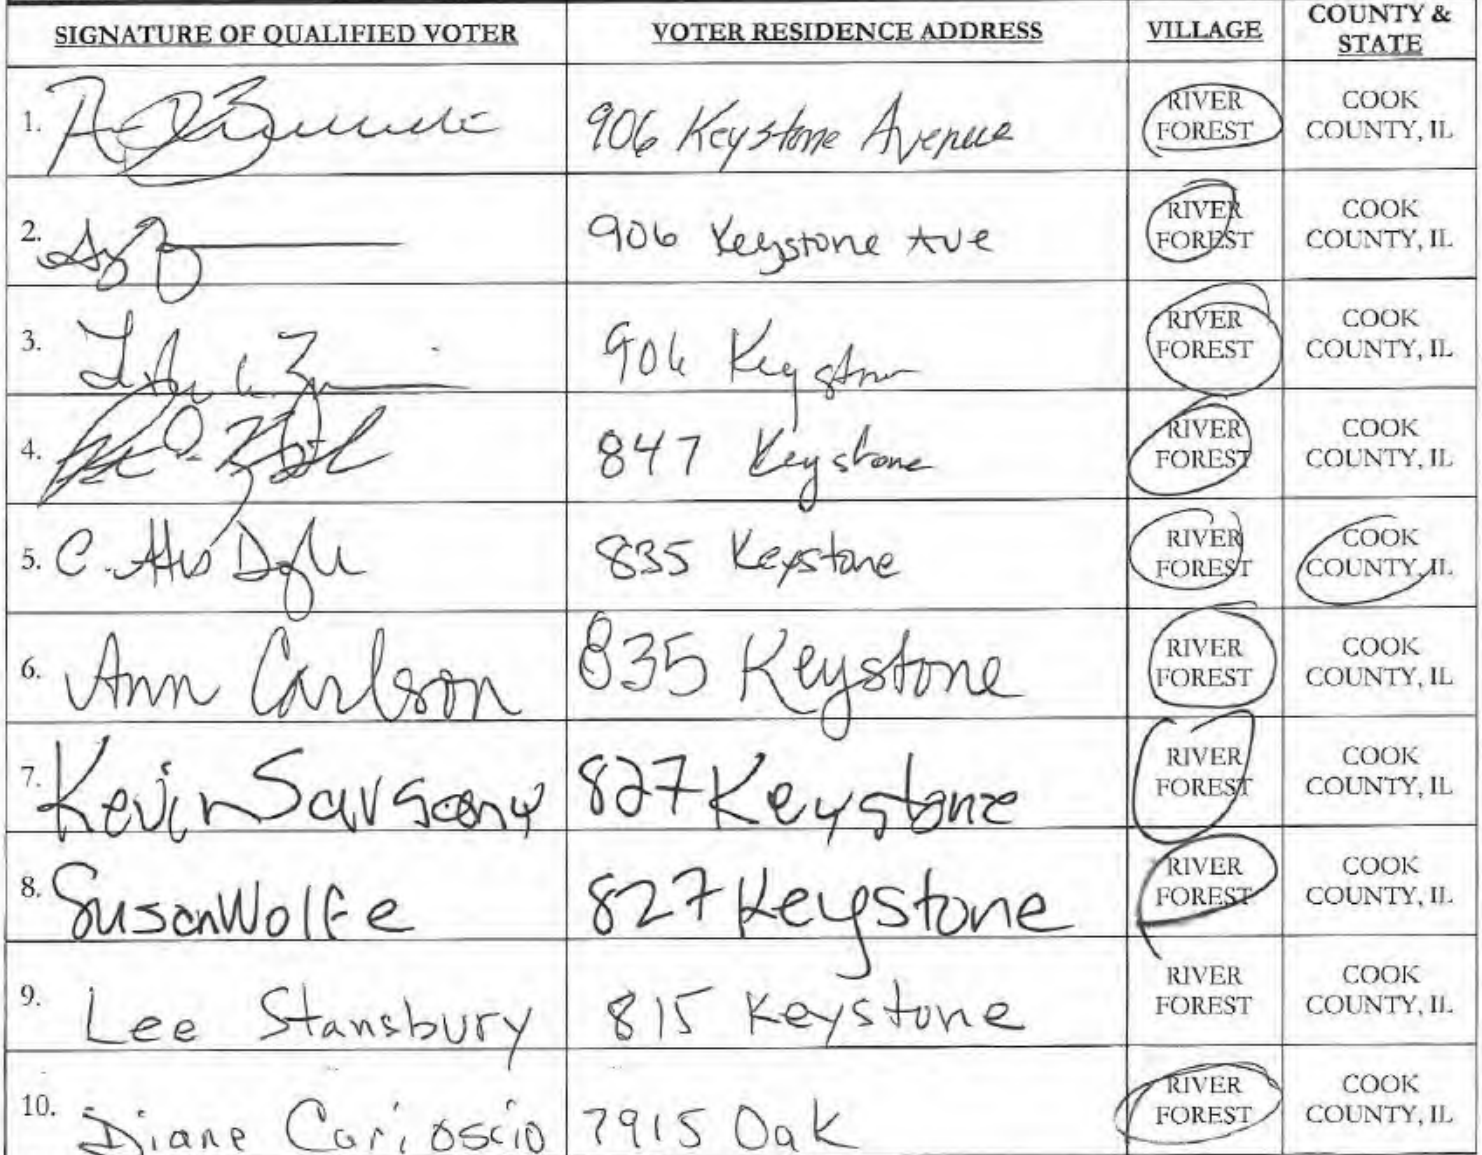 SIGNATURE OF QUALIFIED VOTER VOTER RESIDENCE ADDRESS VILLAGE COUNTY & STATE
1. 906 Keystone Avenue RIVER FOREST COOK COUNTY, IL
2. 906 Keystone Ave RIVER FOREST COOK COUNTY, IL
3. 906 Keystone RIVER FOREST COOK COUNTY, IL
4. 847 Keystone RIVER FOREST COOK COUNTY, IL
5. C. 835 Keystone RIVER FOREST COOK COUNTY, IL
6. Ann Carlson 835 Keystone RIVER FOREST COOK COUNTY, IL
7. Kevin 827 Keystone RIVER FOREST COOK COUNTY, IL
8. Susan Wolfe 827 Keystone RIVER FOREST COOK COUNTY, IL
9. Lee Stansbury 815 Keystone RIVER FOREST COOK COUNTY, IL
10. Diane Carioscio 7915 Oak RIVER FOREST COOK COUNTY, IL